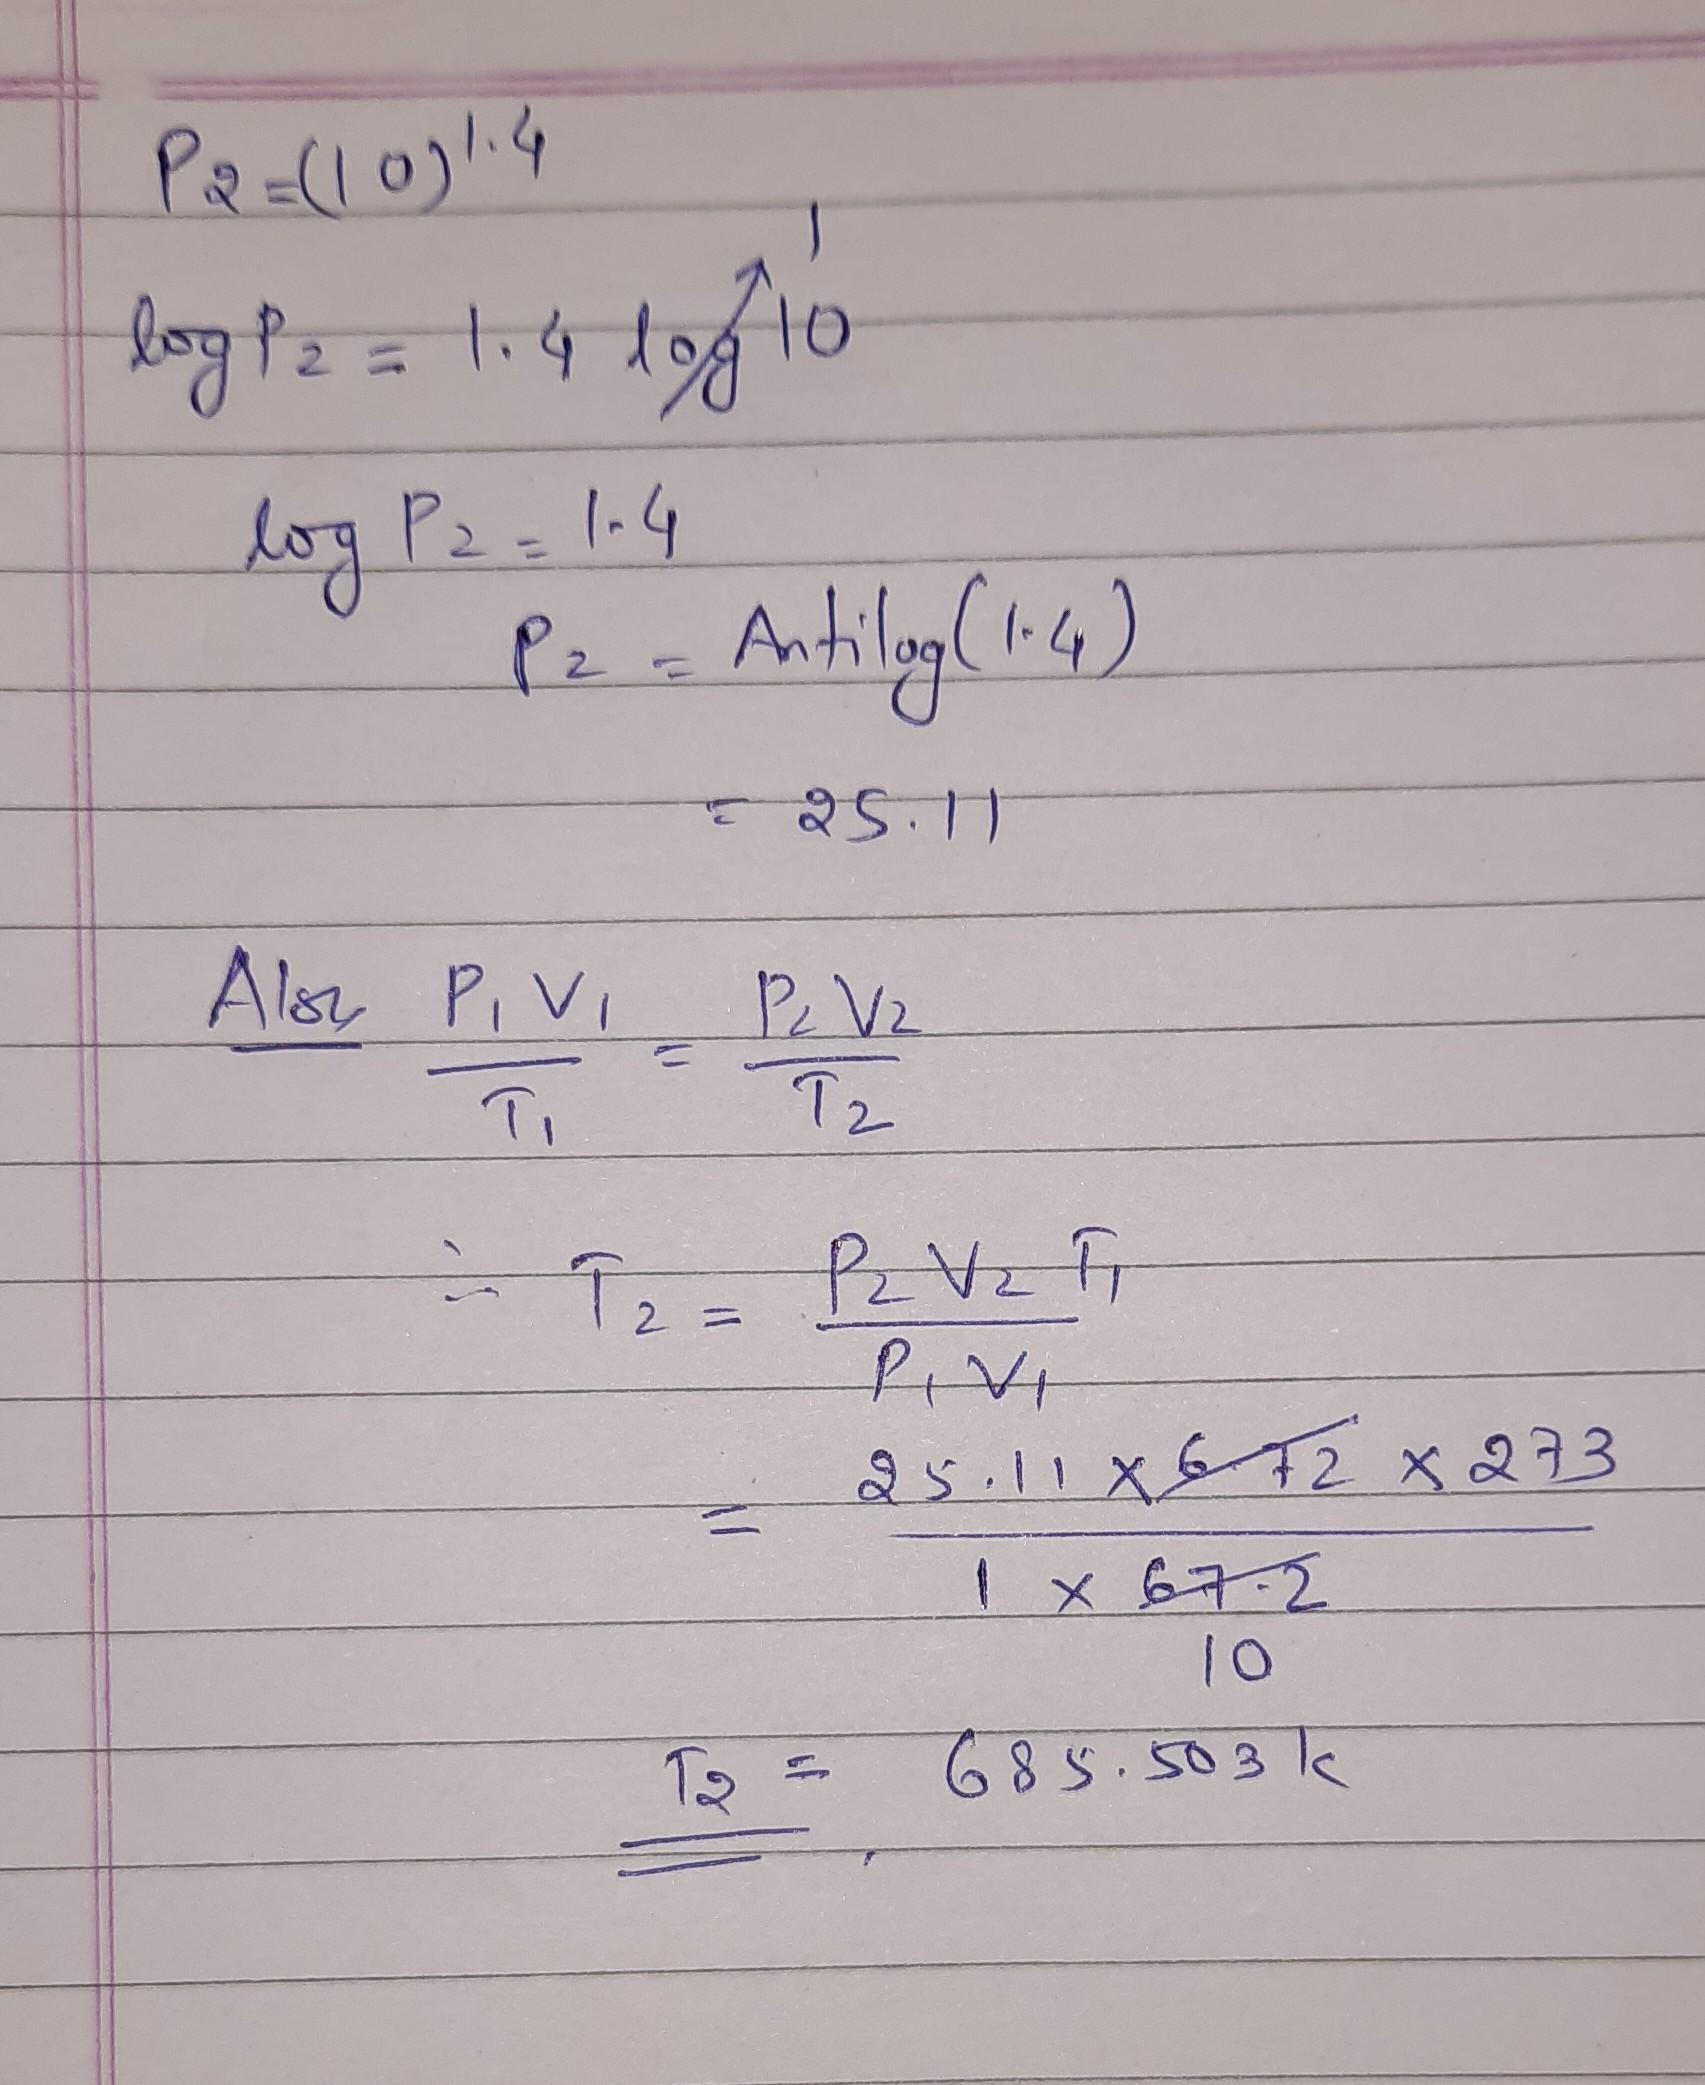 P2=(10)^1.4
log P2 = 1.4 log 10 ↗ 1
log P2 = 1.4
P2 = Antilog(1.4)
= 25.11
Also P1 V1 / T1 = P2 V2 / T2
∴ T2 = P2 V2 T1 / P1 V1
= 25.11 × 6.72 × 273 / 1 × 67.2
10
T2 = 685.503 k